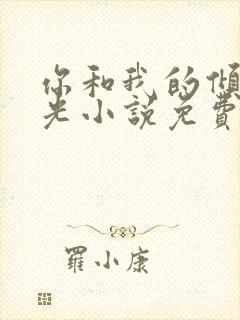 你和我的傾
光小說免費
羅小康